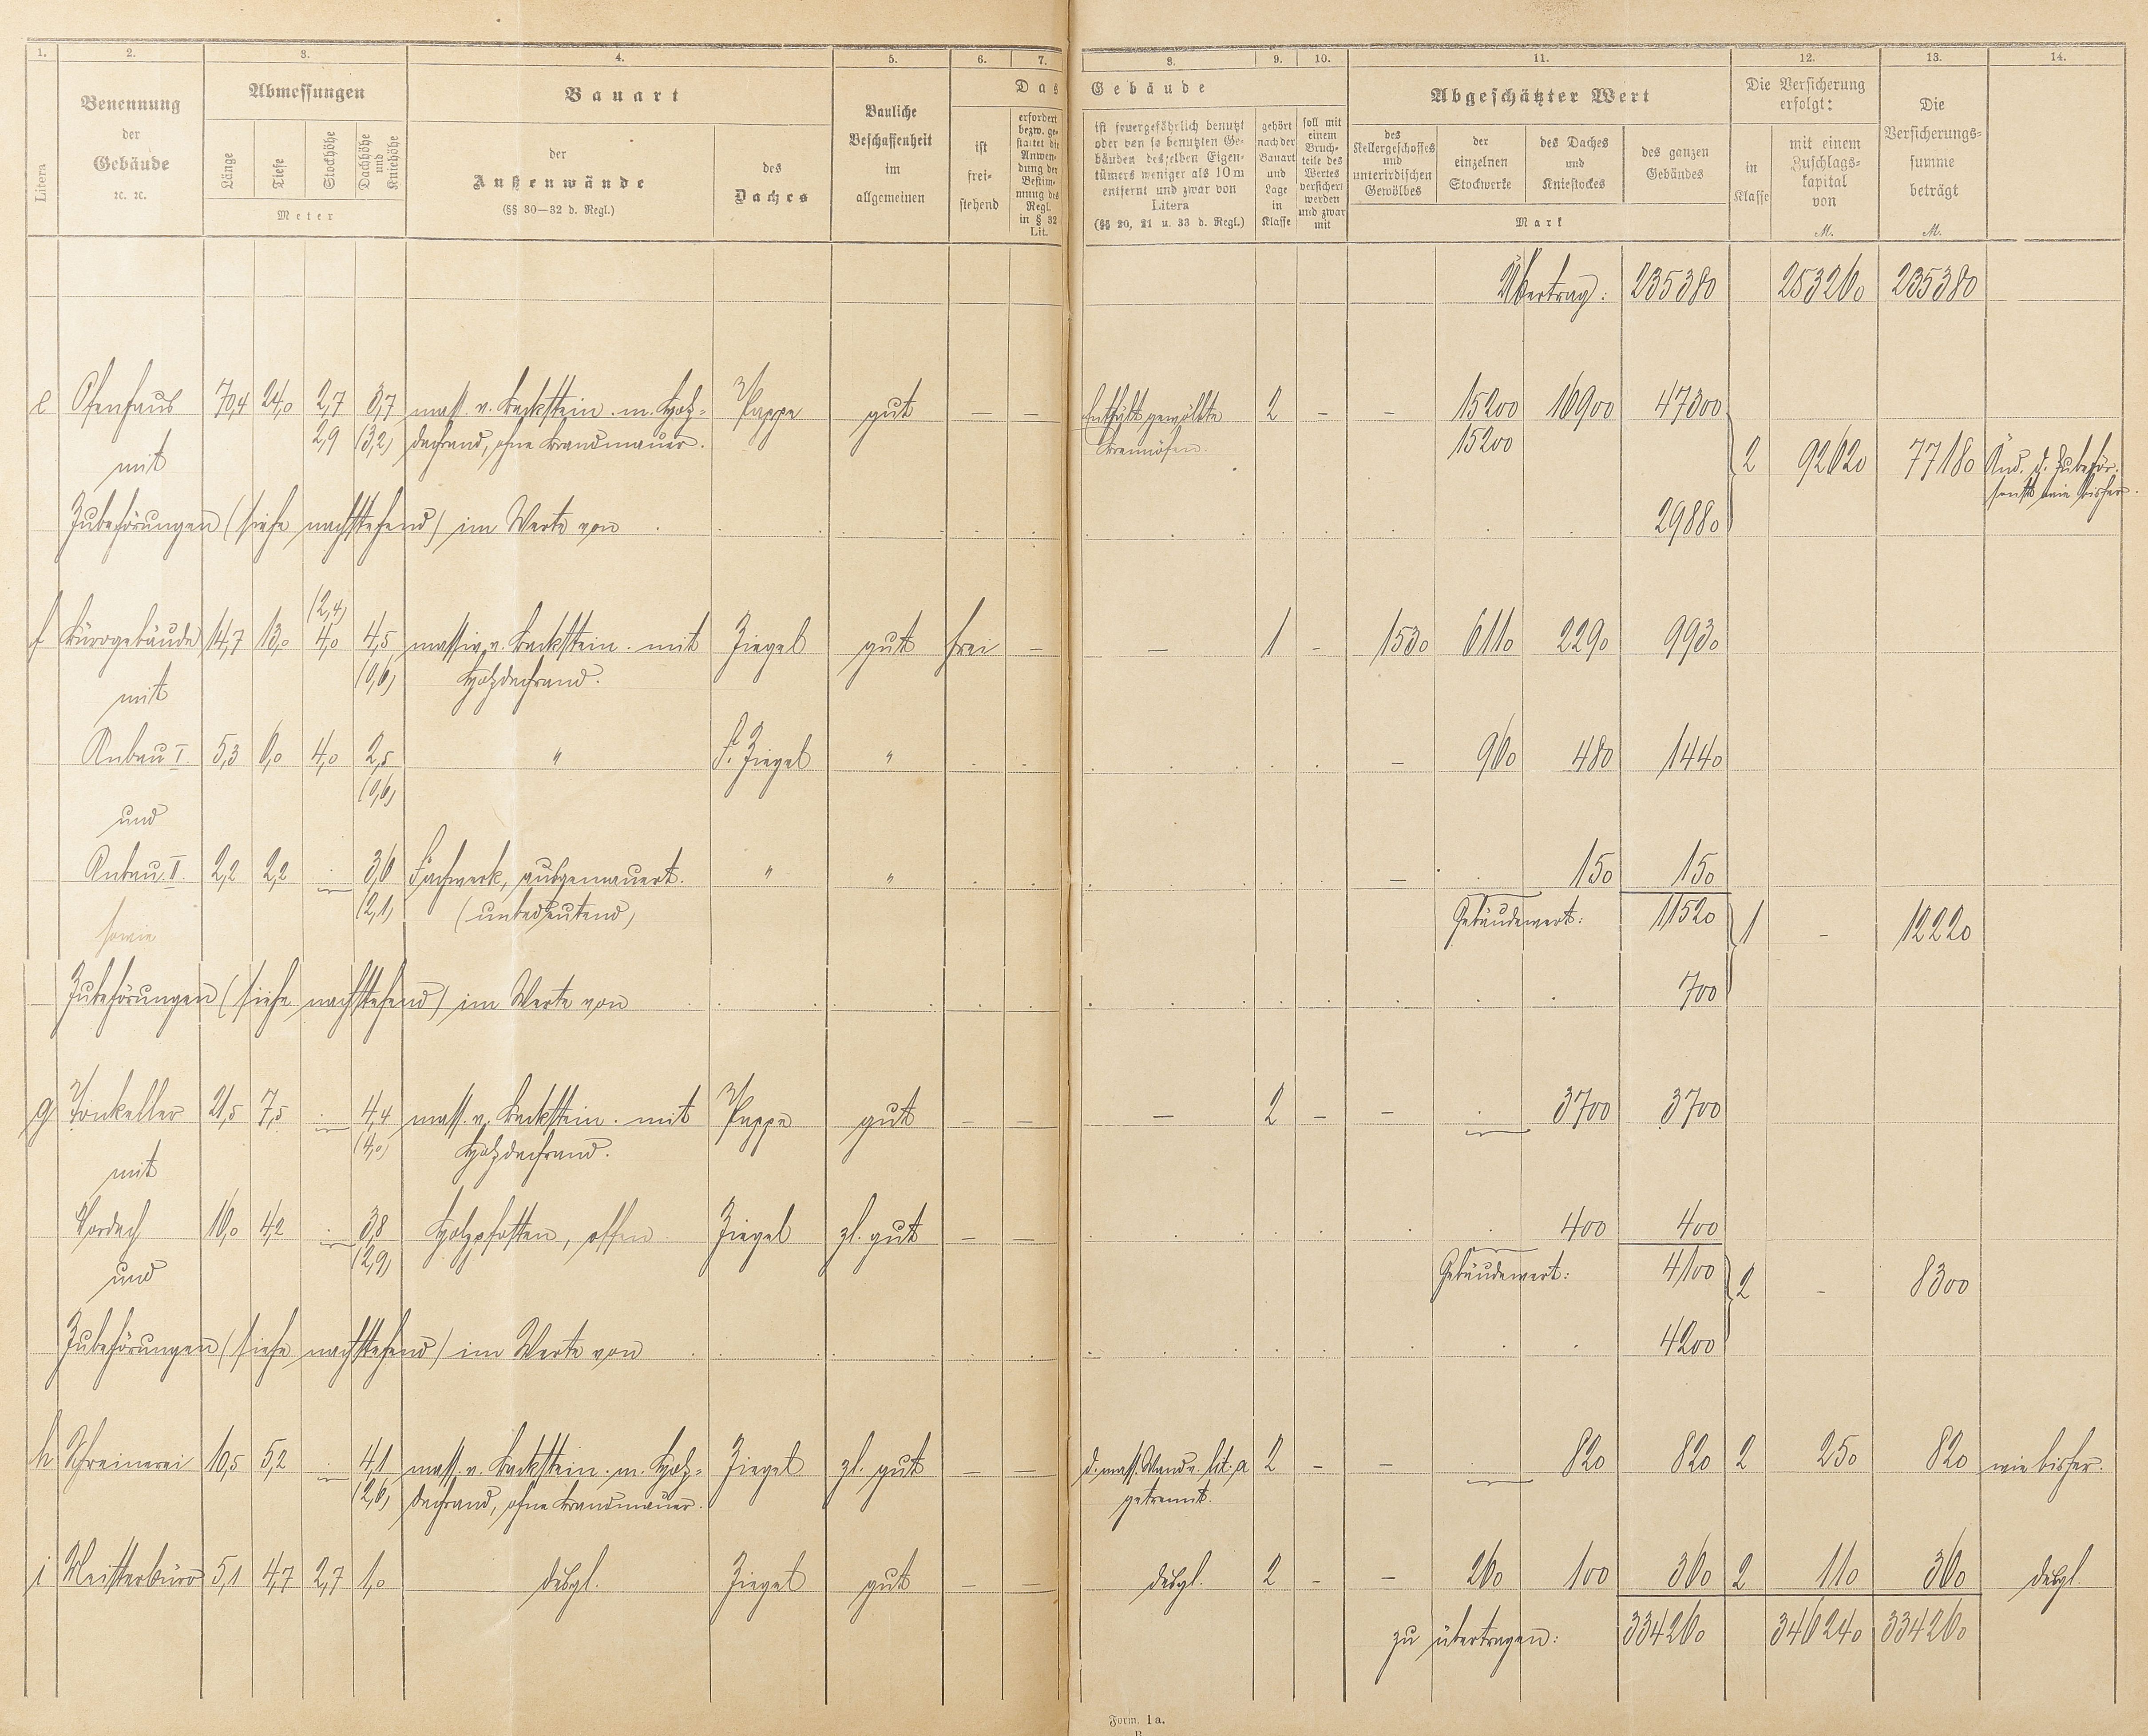 1. 2. 3. 4. 5. 6. 7. 8. 9. 10. 11. 12. 13. 14.
Litera
Benennung
der
Gebäude
ꝛc. ꝛc.
Abmessungen
Länge Tiefe Stockhöhe Dachhöhe und Kniehöhe
Meter
Bauart
der
Außenwände
(§§ 30—32 d. Regl.)
des
Daches
Bauliche
Beschaffenheit
im
allgemeinen
Das Gebäude
ist
frei-
stehend
erfordert
bezw. ge-
stattet die
Anwen-
dung der
Bestim-
mung des
Regl.
in § 32
Lit.
ist feuergefährlich benutzt
oder von so benutzten Ge-
bäuden desselben Eigen-
tümers weniger als 10 m
entfernt und zwar von
Litera
(§§ 20, 21 u. 33 d. Regl.)
gehört
nach der
Bauart
und
Lage
in
Klasse
soll mit
einem
Bruch-
teile des
Wertes
versichert
werden
und zwar
mit
Abgeschätzter Wert
des
Kellergeschosses
und
unterirdischen
Gewölbes
der
einzelnen
Stockwerke
des Daches
und
Kniestockes
des ganzen
Gebäudes
Mark
Die Versicherung
erfolgt:
in
Klasse
mit einem
Zuschlags-
kapital
von
M.
Die
Versicherungs-
summe
beträgt
M.
Übertrag: 235380 253260 235380
e Ofenhaus 70,4 24,0 2,7 3,7 mass. v. Backstein. m. Holz- Pappe gut — — Enthält gewölbte 2 - - 15200 16900 47300
2,9 (3,2) dachrand, ohne Brandmauer. Brennöfen. 15200
mit 2 92620 77180 Änd. d. Zubehör.
sonst wie bisher.
Zubehörungen (siehe nachstehend) im Werte von 29880
(2,4)
f Bürogebäude 14,7 13,0 4,0 4,5 massiv v. Backstein. mit Ziegel gut frei — — 1 - 1530 6110 2290 9930
(0,6) Holzdachrand.
mit
Anbau I. 5,3 6,0 4,0 2,5 " F. Ziegel " - 960 480 1440
(0,6)
und
Anbau II. 2,2 2,2 3,6 Fachwerk, ausgemauert. " " - 150 150
(2,1) (unbedeutend) Gebäudewert: 11520 1 - 12220
sowie
Zubehörungen (siehe nachstehend) im Werte von 700
g Tonkeller 21,5 7,5 4,4 mass. v. Backstein. mit Pappe gut — — — 2 - - 3700 3700
(4,0) Holzdachrand.
mit
Vordach 10,0 4,2 3,8 Holzpfosten, offen Ziegel zl. gut — — 400 400
(2,9)
und Gebäudewert: 4100 2 - 8300
Zubehörungen (siehe nachstehend) im Werte von 4200
h Schreinerei 10,5 5,2 4,1 mass. v. Backstein. m. Holz- Ziegel zl. gut — — d. mass. Wand v. lit. a 2 - - 820 820 2 250 820 wie bisher.
(2,6) dachrand, ohne Brandmauer. getrennt.
i Meisterbüro 5,1 4,7 2,7 1,0 desgl. Ziegel gut — — desgl. 2 - - 260 100 360 2 110 360 desgl.
zu übertragen: 334260 346240 334260
Form. 1a.
B